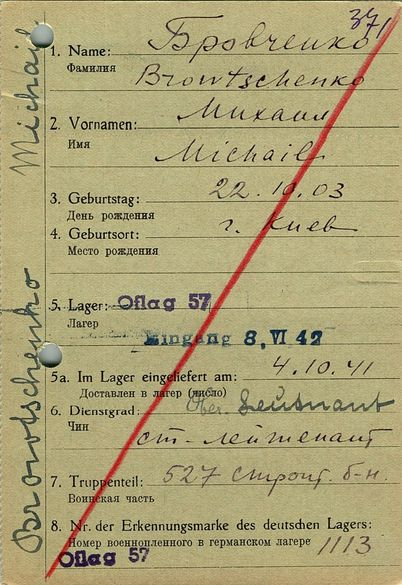 371
1. Name: Бровченко
Фамилия
Browtschenko
Михаил
2. Vornamen:
Имя
Michail
3. Geburtstag: 22.10.03
День рождения
4. Geburtsort: г. Киев
Место рождения
5. Lager: Oflag 57
Лагерь
Eingang 8. VI 42
5a. Im Lager eingeliefert am: 4.10.41
Доставлен в лагерь (число)
6. Dienstgrad: Ober. Leutnant
Чин
ст-лейтенант
7. Truppenteil: 527 строит. б-н.
Воинская часть
8. Nr. der Erkennungsmarke des deutschen Lagers:
Номер военнопленного в германском лагере 1113
Oflag 57
Browtschenko Michail